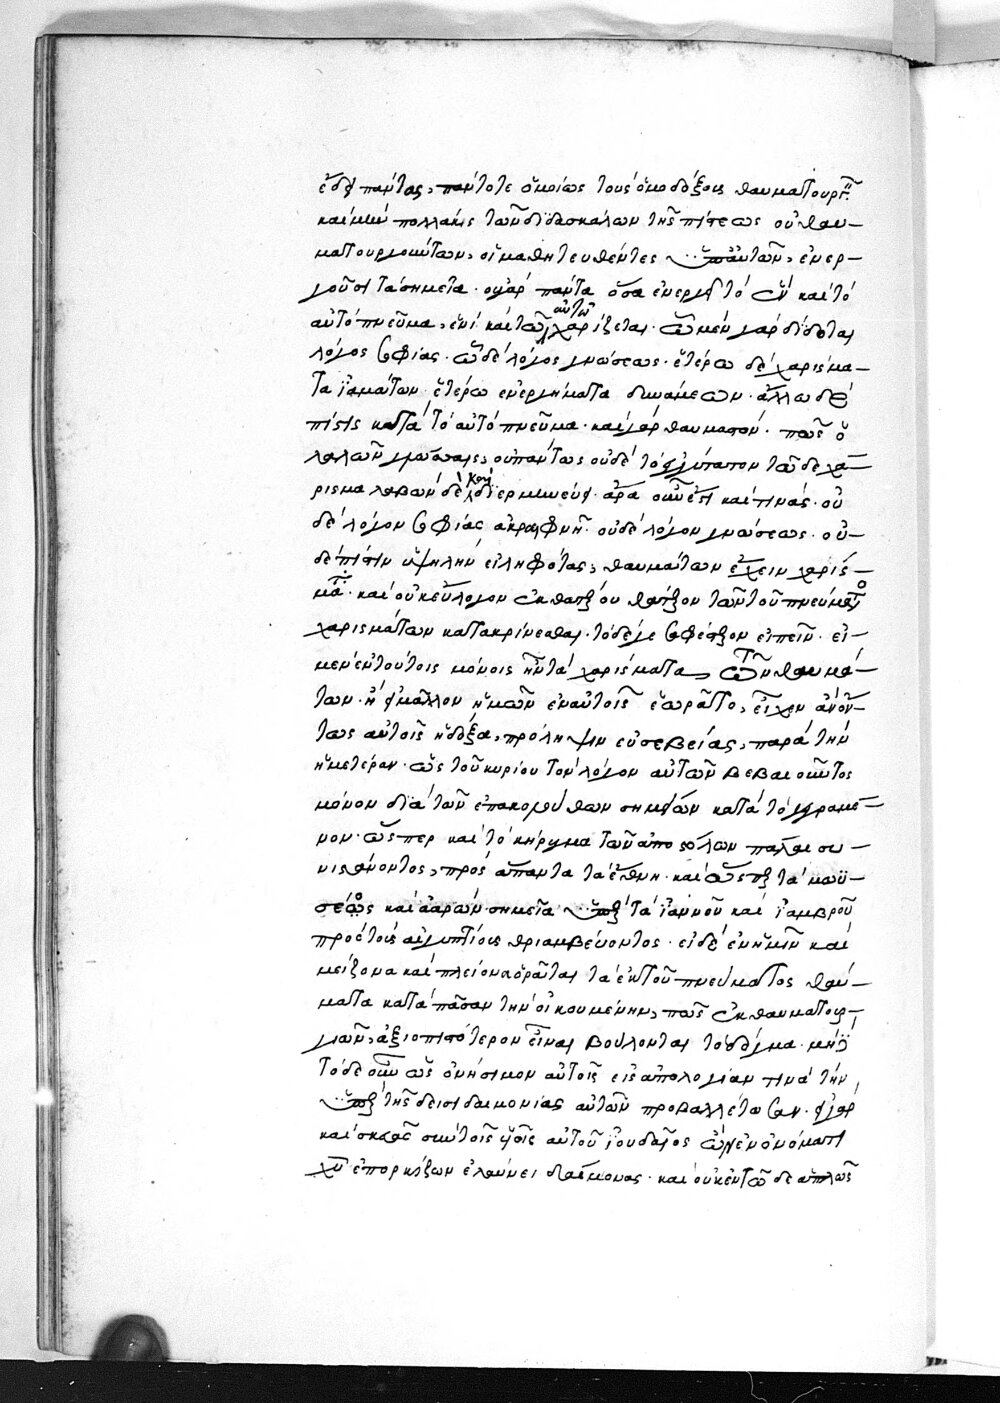 ἔδει πάντας, πάντοτε ὁμοίως τοὺς ὁμοδόξους θαυματουργεῖν·
καὶ μὴν πολλάκις τῶν διδασκάλων τῆς πίστεως οὐ θαυ-
ματουργούντων, οἱ μαθητευθέντες ὑπ' αὐτῶν, ἐνερ-
γοῦσι τὰ σημεῖα· οὐ γὰρ πάντα ὅσα ἐνεργεῖ τὸ ἓν καὶ τὸ
αὐτὸ πνεῦμα, ἑνὶ καὶ τῷ αὐτῷ χαρίζεται· ᾧ μὲν γὰρ δίδοται
λόγος σοφίας· ᾧ δὲ λόγος γνώσεως· ἑτέρῳ δὲ χαρίσμα-
τα ἰαμάτων· ἑτέρῳ ἐνεργήματα δυνάμεων· ἄλλῳ δὲ
πίστις κατὰ τὸ αὐτὸ πνεῦμα· καὶ γὰρ θαυμαστόν· πῶς ὁ
λαλῶν γλώσσαις, οὐ πάντως οὐδὲ τὸ
ρισμα λαβὼν δὲ καὶ διερμηνεύει· ἆρα οὖν ἔστι καί τινας· οὐ
δὲ λόγον σοφίας ἀκραιφνῆ· οὐδὲ λόγον γνώσεως· οὐ-
δὲ πίστιν ὑψηλὴν εἰληφότας, θαυμάτων ἔχειν χαρίς-
μα· καὶ οὐκ εὔλογον ἐκ θατέρου θάτερον τῶν τοῦ πνεύματος
χαρισμάτων κατακρίνεσθαι· τὸ δέ γε σοφώτερον εἰπεῖν· εἰ
μὲν ἐν τούτοις μόνοις ἦν τὰ χαρίσματα τῶν θαυμά-
των· ἢ μᾶλλον ἡμῶν ἐν αὐτοῖς ἑωρᾶτο, εἶχεν ἂν οὕ-
τως αὐτοῖς ἡ δόξα, πρόληψιν εὐσεβείας, παρὰ τὴν
ἡμετέραν· ὡς τοῦ κυρίου τὸν λόγον αὐτῶν βεβαιοῦντος
μόνον διὰ τῶν ἐπακολουθούντων σημείων κατὰ τὸ γεγραμμέ-
νον· ὥσπερ καὶ τὸ κήρυγμα τῶν ἀποστόλων πάλαι συ-
νιστάνοντος, πρὸς ἅπαντα τὰ ἔθνη· καὶ ὥσπερ τὰ μωϋ-
σέως καὶ ἀαρὼν σημεῖα ὑπὲρ τὰ ἰαννοῦ καὶ ἰαμβροῦ
πρὸς τοὺς αἰγυπτίους θριαμβεύοντος· εἰ δὲ ἐν ἡμῖν καὶ
μείζονα καὶ πλείονα ὁρᾶται τὰ ἐκ τοῦ πνεύματος θαύ-
ματα κατὰ πᾶσαν τὴν οἰκουμένην, πῶς ἐκ θαυματουρ-
γιῶν, ἀξιοπιστότερον εἶναι βούλονται τὸ δόγμα· μηδὲ
τόδε οὖν ὡς ὀνήσιμον αὐτοῖς εἰς ἀπολογίαν τινὰ τὴν
ὑπὲρ τῆς δεισιδαιμονίας αὐτῶν προβαλλέτωσαν· εἰ γὰρ
καὶ σκευᾶς σὺν τοῖς υἱοῖς αὐτοῦ ἰουδαῖος ὢν ἐν ὀνόματι
χυ ἐπορκίζων ἐλαύνει δαίμονας· καὶ οὐκ ἐν τῷδε ἁπλῶς